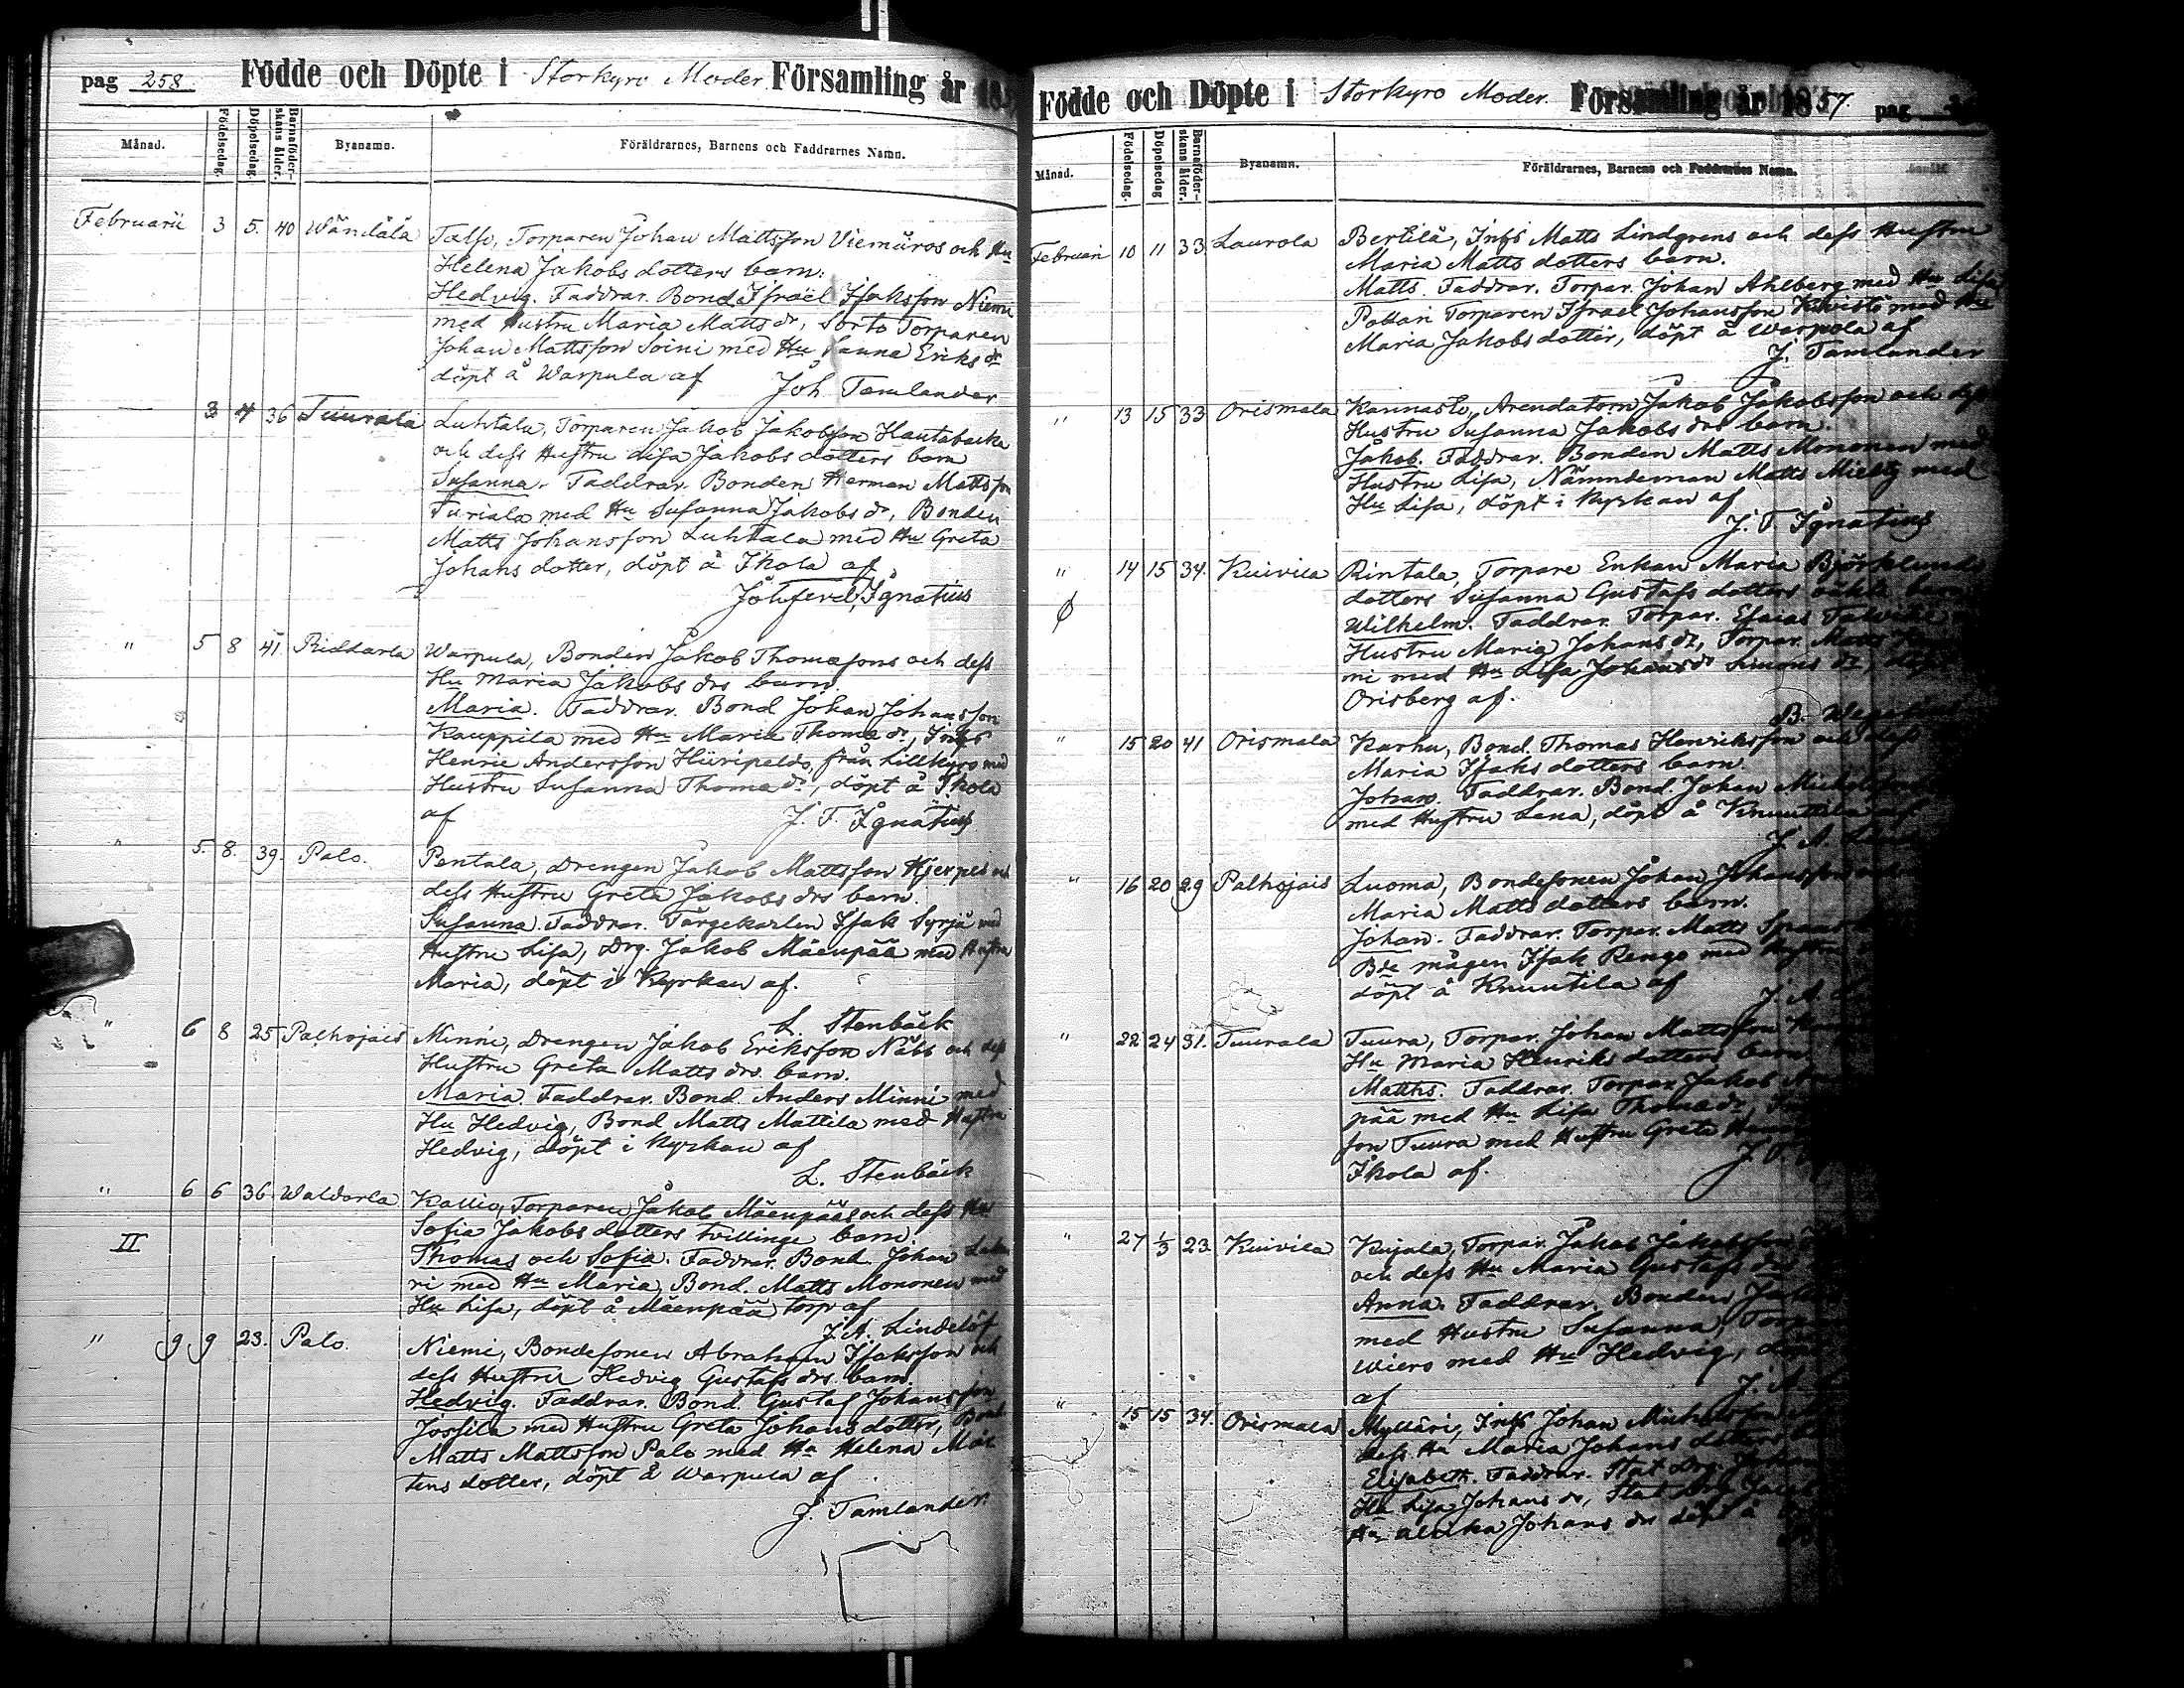 pag 258 Födde och Döpte i Storkyro Moder Församling år 185
Månad. Födelsedag. Döpelsedag. Barnaföderskans ålder. Byanamn. Föräldrarnes, Barnens och Faddrarnes Namn.
Februarii 3 5. 40 Wändälä Talso, Torparen Johan Mattsson Viemäros och Hu
Helena Jakobs dotters barn:
Hedvig. Faddrar. Bond Israel Isaksson Niemi
med Hustru Maria Matts dr, Sorto Torparen
Johan Mattsson Soini med Hu Sanna Eriks dr
döpt å Warpula af Joh Tamlander
— 3 4 36 Tuurala Luhtala, Torparen Jakob Jakobsson Hautabacka
och dess Hustru Lisa Jakobs dotters barn
Susanna. Faddrar. Bonden Herman Mattsson
Turiala med Hu Susanna Jakobs dr, Bonden
Matts Johansson Luhtala med Hu Greta
Johans dotter, döpt å Ikola af
Joh. Ferd. Ignatius
" 5 8 41 Riddarla Warpula, Bonden Jakob Thomasons och dess
Hu Maria Jakobs drs barn.
Maria. Faddrar. Bond Johan Johansson
Kauppila med Hu Maria Thoma dr, Inhs
Henric Andersson Hiiripeldo, från Lillkyro med
Hustru Susanna Thoma dr, döpt å Ikola
af J. F. Ignatius
" 5. 8. 39. Palo. Pentala, Drengen Jakob Mattsson Kjerpes och
dess Hustru Greta Jakobs drs barn.
Susanna. Faddrar. Färgekarlen Isak Syrjä med
Hustru Lisa, Drg. Jakob Mäenpää med Hustru
Maria, döpt i Kyrkan af.
L. Stenbäck
" 6 8 25 Palhojais Minni, Drengen Jakob Eriksson Näbb och dess
Hustru Greta Matts drs barn.
Maria. Faddrar. Bond. Anders Minni med
Hu Hedvig, Bond Matts Mattila med Hustru
Hedvig, döpt i Kyrkan af
L. Stenbäck
" 6 6 36. Waldarla Kallio, Torparen Jakob Mäenpääs och dess Hu
II Sofia Jakobs dotters tvillinge barn.
Thomas och Sofia. Faddrar. Bond. Johan
ri med Hu Maria, Bond. Matts Mononen med
Hu Lisa, döpt å Mäenpää torp af
J. A. Lindelöf
" 9 9 23. Palo. Niemi, Bondesonen Abraham Isaksson och
dess Hustru Hedvig Gustafs drs barn.
Hedvig. Faddrar. Bond. Gustaf Johansson
Jossila med Hustru Greta Johans dotter, Bond
Matts Mattsson Palo med Hu Helena Mår
tens dotter, döpt å Warpula af
J. Tamlander.
Födde och Döpte i Storkyro Moder. Församling år 1857. pag
Månad. Födelsedag. Döpelsedag Barnaföderskans ålder. Byanamn. Föräldrarnes, Barnens och Faddrarnes Namn.
Februari 10 11 33. Laurola Bertilä, Inhs Matts Lindgrens och dess Hustru
Maria Matts dotters barn.
Matts. Faddrar. Torpar. Johan Ahlberg med Hu Lisa
Pottari Torparen Israel Johansson Kivistö med Hu
Maria Jakobs dotter, döpt å Warpola af
J. Tamlander
" 13 15 33 Orismala Kannasto, Arendatorn Jakob Jakobsson och dess
Hustru Susanna Jakobs drs barn.
Jakob. Faddrar. Bonden Matts Mononen med
Hustru Lisa, Nämndeman Matts Mielty med
Hu Lisa, döpt i Kyrkan af
J. F. Ignatius
" 14 15 34. Kuivila Rintala, Torpare Enkan Maria Björklunds
dotters Susanna Gustafs dotters oäkta barn
Wilhelm. Faddrar. Torpar. Esaias
Hustru Maria Johans dr, Torpar. Matts
ni med Hu Lisa Johans dr Simons dr, döpt
Orisberg af.
B.
" 15 20 41 Orismala Karhu, Bond. Thomas Henriksson och dess
Maria Isaks dotters barn.
Johan. Faddrar. Bond. Johan Michelsson
med Hustru Lena, döpt å Knuuttila af
J. A.
" 16 20 29 Palhojais Luoma, Bondesonen Johan Johansson och
Maria Matts dotters barn.
Johan. Faddrar. Torpar. Matts
Bde mågen Isak Rengo med Hustru
döpt å Knuutila af
J. A.
" 22 24 31. Tuurala Tuura, Torpar. Johan Mattsson
Hu Maria Henriks dotters barn.
Matths. Faddrar. Torpar Jakob
pää med Hu Lisa Thoma dr,
son Tuura med Hustru Greta
Ikola af. J. F.
" 27 1/3 23. Kuivila Kujala, Torpar. Jakob Jakobsson
och dess Hu Maria Gustafs drs
Anna. Faddrar. Bonden
med Hustru Susanna, Torp
wiers med Hu Hedvig, döpt
af J. A.
" 15 15 34. Orismala Mylläri, Inhs Johan Michelsson
dess Hu Maria Johans dotters
Elisabeth. Faddrar. Stat Drg. Johan
Hu Lisa Johans dr, Stat Drg
Hu Ulrika Johans dr döpt å